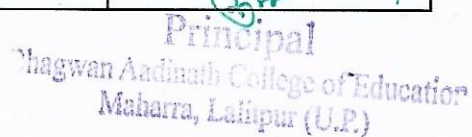 Principal
Bhagwan Aadinath College of Education
Maharra, Lalitpur (U.P.)